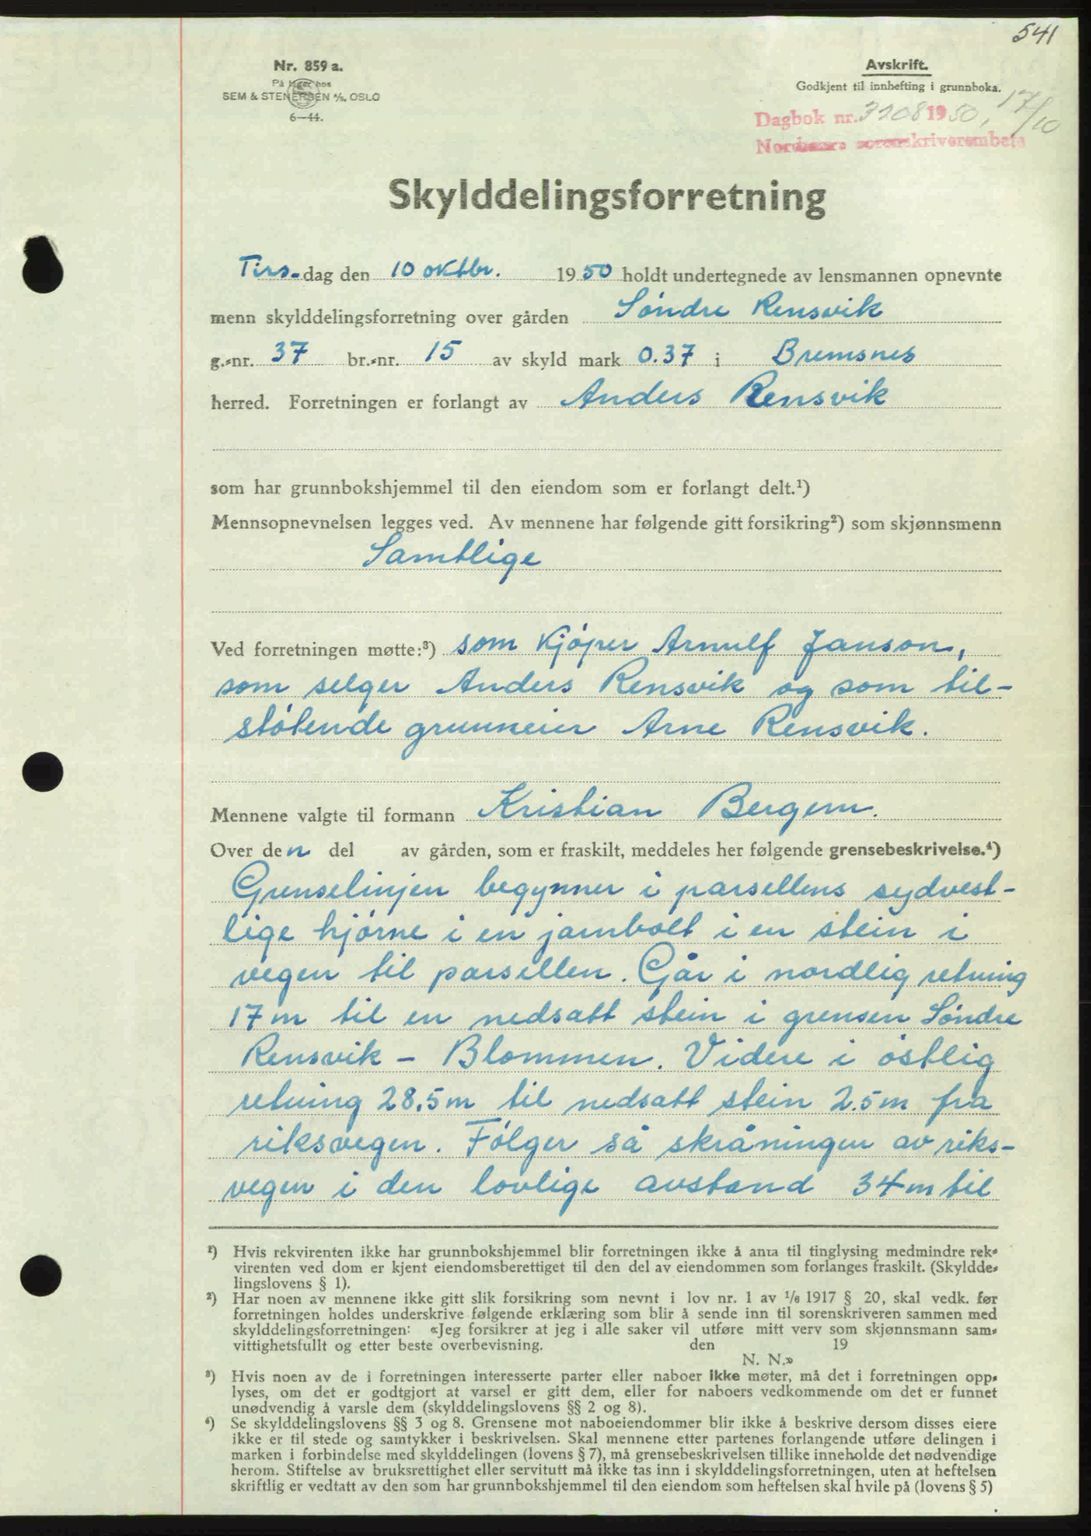 541
Nr. 859 a.
På lager hos
SEM & STENERSEN A/S, OSLO
6—44.
Avskrift.
Godkjent til innhefting i grunnboka.
Dagbok nr. 3208 1950, 17/10
Nordmøre sorenskriverembete
Skylddelingsforretning
Tirsdag den 10 oktbr. 1950 holdt undertegnede av lensmannen opnevnte
menn skylddelingsforretning over gården Söndre Rensvik
g.-nr. 37 br.-nr. 15 av skyld mark 0.37 i Bremsnes
herred. Forretningen er forlangt av Anders Rensvik
som har grunnbokshjemmel til den eiendom som er forlangt delt.¹)
Mennsopnevnelsen legges ved. Av mennene har følgende gitt forsikring²) som skjønnsmenn
Samtlige
Ved forretningen møtte:³) som kjöper Arnulf Janson,
som selger Anders Rensvik og som til-
stötende grunneier Arne Rensvik.
Mennene valgte til formann Kristian Bergem.
Over den del av gården, som er fraskilt, meddeles her følgende grensebeskrivelse.⁴)
Grenselinjen begynner i parsellens sydvest-
lige hjörne i en jarnbolt i en stein i
vegen til parsellen. Går i nordlig retning
17 m til en nedsatt stein i grensen Söndre
Rensvik – Blommen. Videre i östlig
retning 28,5 m til nedsatt stein 2.5 m fra
riksvegen. Fölger så skråningen av riks-
vegen i den lovlige avstand 34 m til
¹) Hvis rekvirenten ikke har grunnbokshjemmel blir forretningen ikke å anta til tinglysing medmindre rek-
virenten ved dom er kjent eiendomsberettiget til den del av eiendommen som forlanges fraskilt. (Skyldde-
lingslovens § 1).
²) Har noen av mennene ikke gitt slik forsikring som nevnt i lov nr. 1 av 1/6 1917 § 20, skal vedk. før
forretningen holdes underskrive følgende erklæring som blir å sende inn til sorenskriveren sammen med
skylddelingsforretningen: «Jeg forsikrer at jeg i alle saker vil utføre mitt verv som skjønnsmann sam-
vittighetsfullt og etter beste overbevisning. den 19
N. N.»
³) Hvis noen av de i forretningen interesserte parter eller naboer ikke møter, må det i forretningen opp-
lyses, om det er godtgjort at varsel er gitt dem, eller for naboers vedkommende om det er funnet
unødvendig å varsle dem (skylddelingslovens §§ 2 og 8).
⁴) Se skylddelingslovens §§ 3 og 8. Grensene mot naboeiendommer blir ikke å beskrive dersom disses eiere
ikke er til stede og samtykker i beskrivelsen. Skal mennene etter partenes forlangende utføre delingen i
marken i forbindelse med skylddelingen (lovens § 7), må grensebeskrivelsen tillike inneholde det nødvendige
herom. Stiftelse av bruksrettighet eller servitutt må ikke tas inn i skylddelingsforretningen, uten at heftelsen
skriftlig er vedtatt av den som har grunnbokshjemmel til den eiendom som heftelsen skal hvile på (lovens § 5)